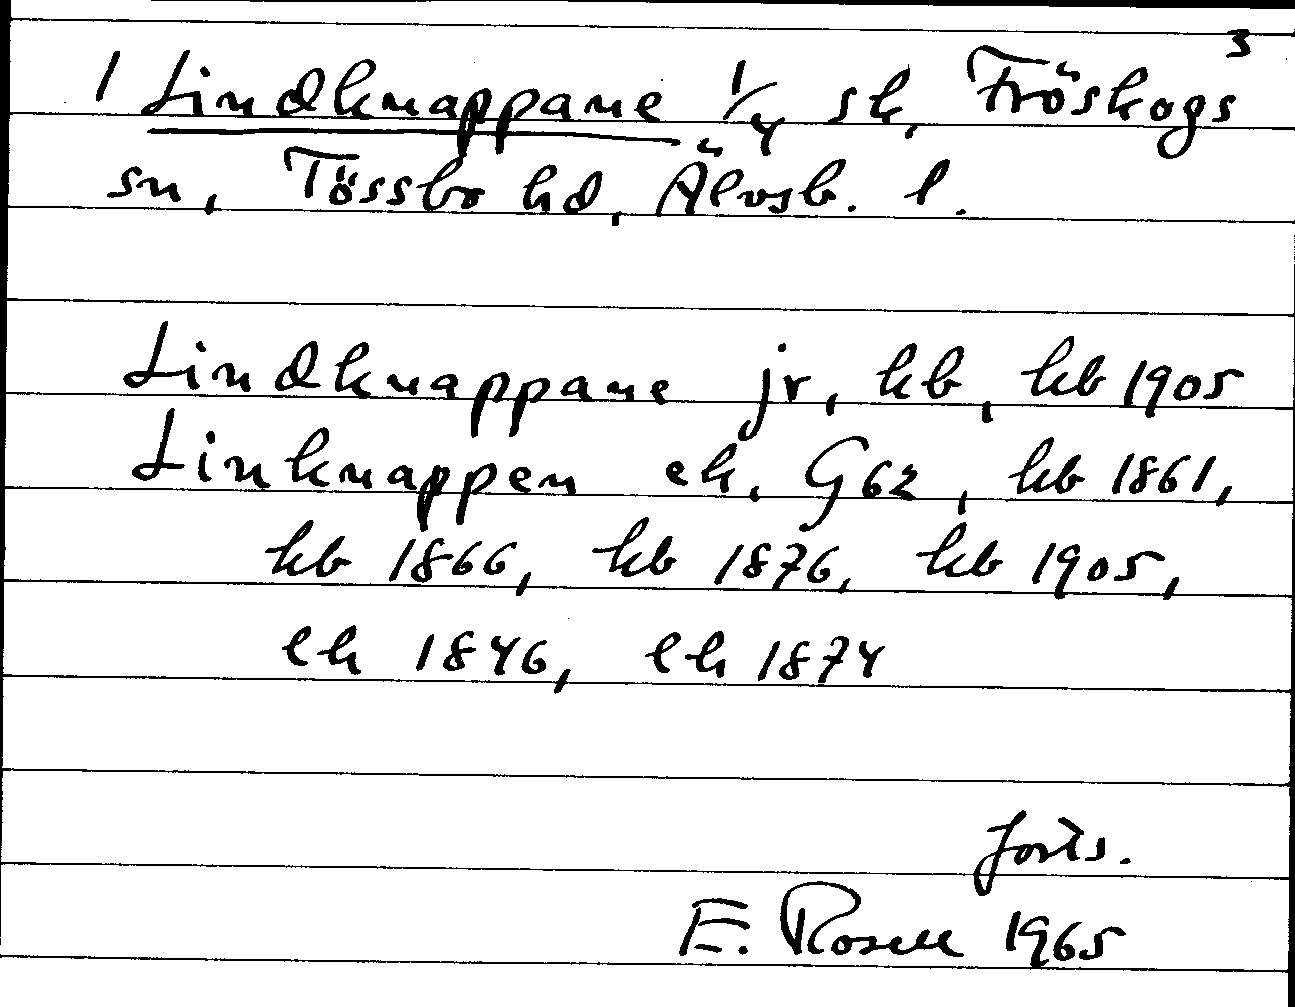 3
1 Lindknappane 1/4 sk, Fröskogs
sn, Tössbo hd, Älvsb. l.
Lindknappane jr, kb, kb 1905
Linknappen ek. G62, kb 1861,
kb 1866, kb 1876, kb 1905,
lh 1846, lh 1874
forts.
E. Rosell 1965